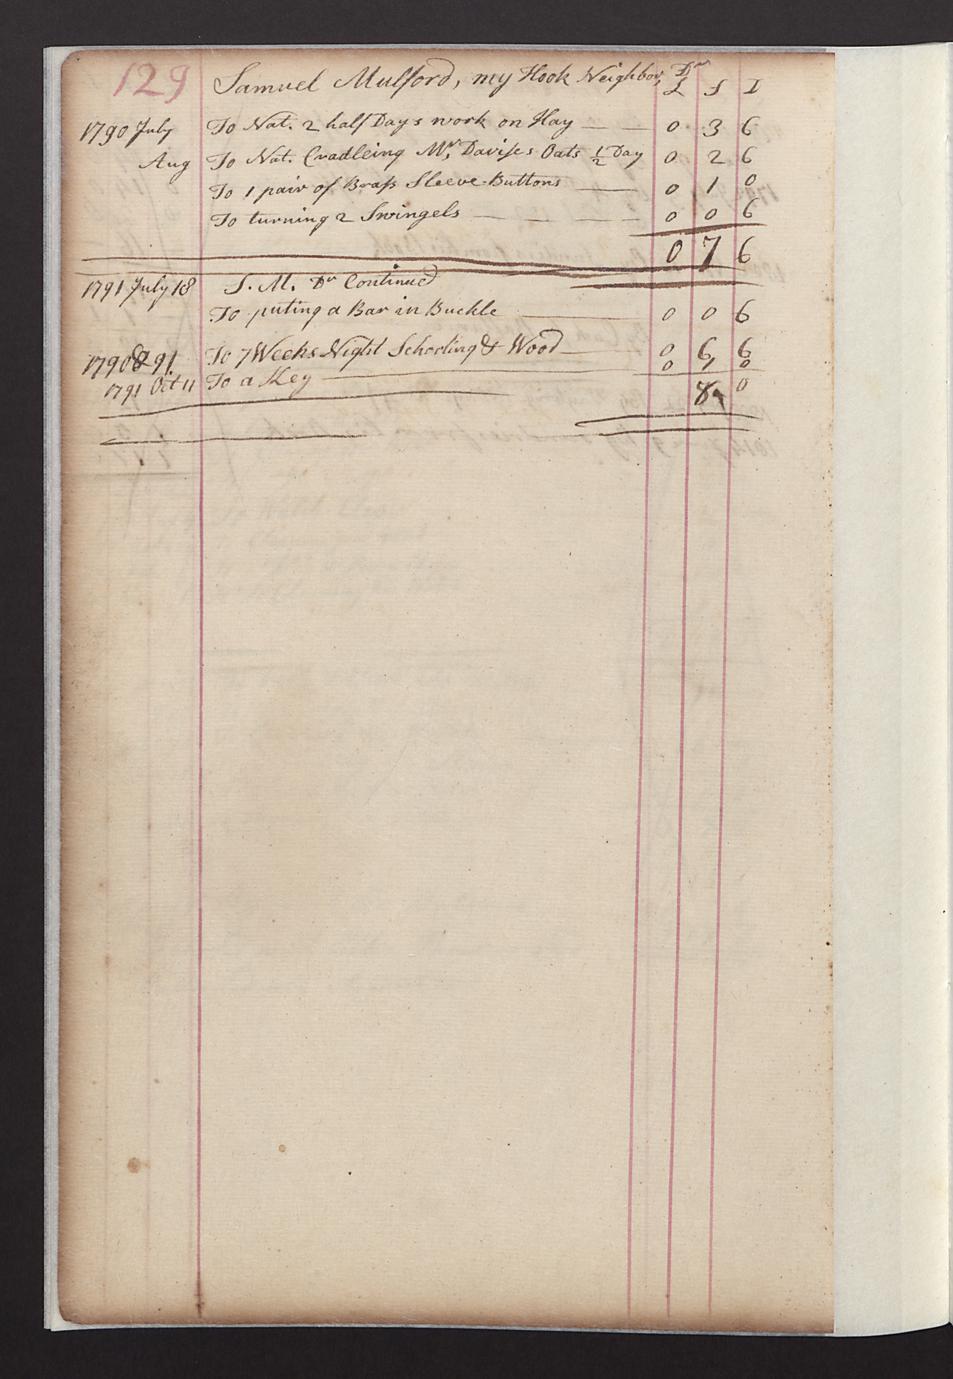 129 Samuel Mulford, my Hook Neighbor, Dr £ S D
1790 July To Nat. 2 half Days work on Hay 0 3 6
Aug To Nat. Cradleing Mr. Davises Oats 1/2 Day 0 2 6
To 1 pair of Brass Sleeve-Buttons 0 1 0
To turning 2 Swingels 0 0 6
0 7 6
1791 July 18 S. M. Dr Continued
To puting a Bar in Buckle 0 0 6
1790 & 91. To 7 Weeks Night Schooling & Wood 0 6 6
1791 Oct 11 To a Key 0 1 0
8 0